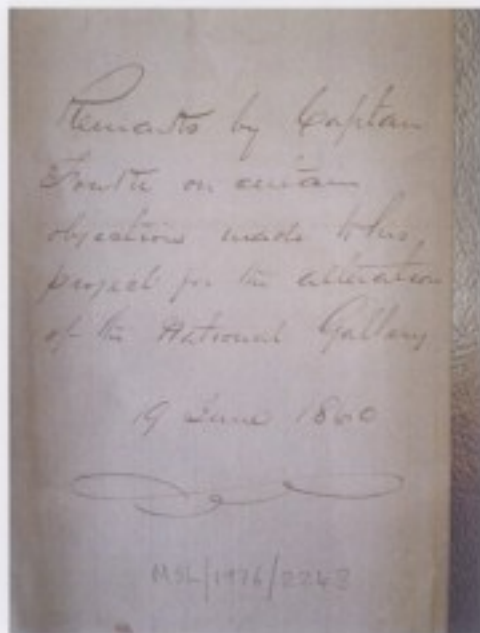 Remarks by Captain
Fowke on certain
objections made to his
project for the alteration
of the National Gallery
19 June 1860
MSL/1976/2243